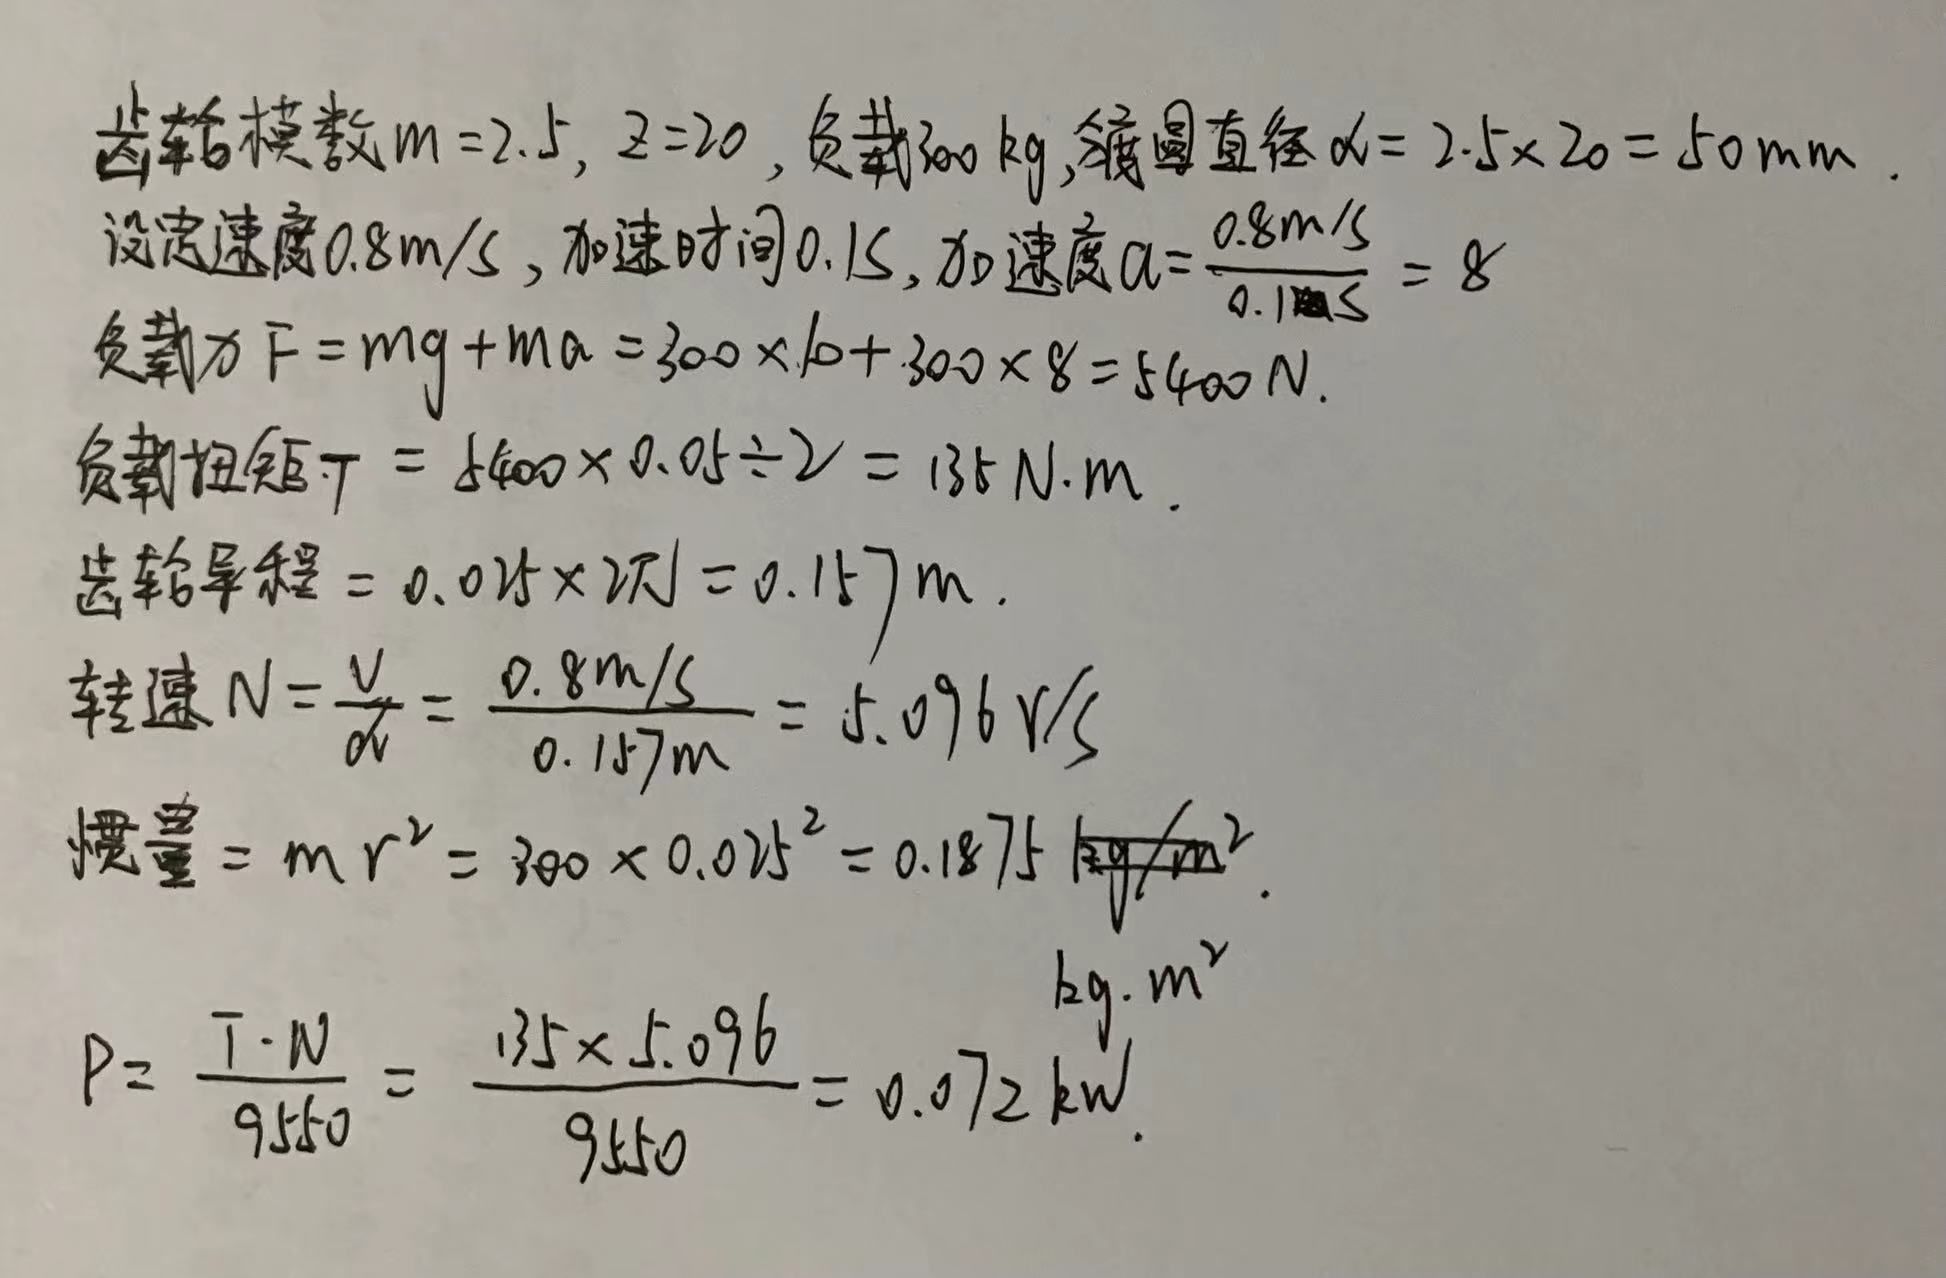 齿轮模数m=2.5, z=20, 负载300kg, 圆直径d=2.5×20=50mm.
设定速度0.8m/s, 加速时间0.1s, 加速度a=0.8m/s/0.1s=8
负载力F=mg+ma=300×10+300×8=5400N.
负载扭矩T=5400×0.05÷2=135N.m.
齿轮导程=0.025×2π=0.157m.
转速N=V/d=0.8m/s/0.157m=5.096r/s
惯量=mr²=300×0.025²=0.1875kg/m².
kg.m²
P=T·N/9550=135×5.096/9550=0.072kW.